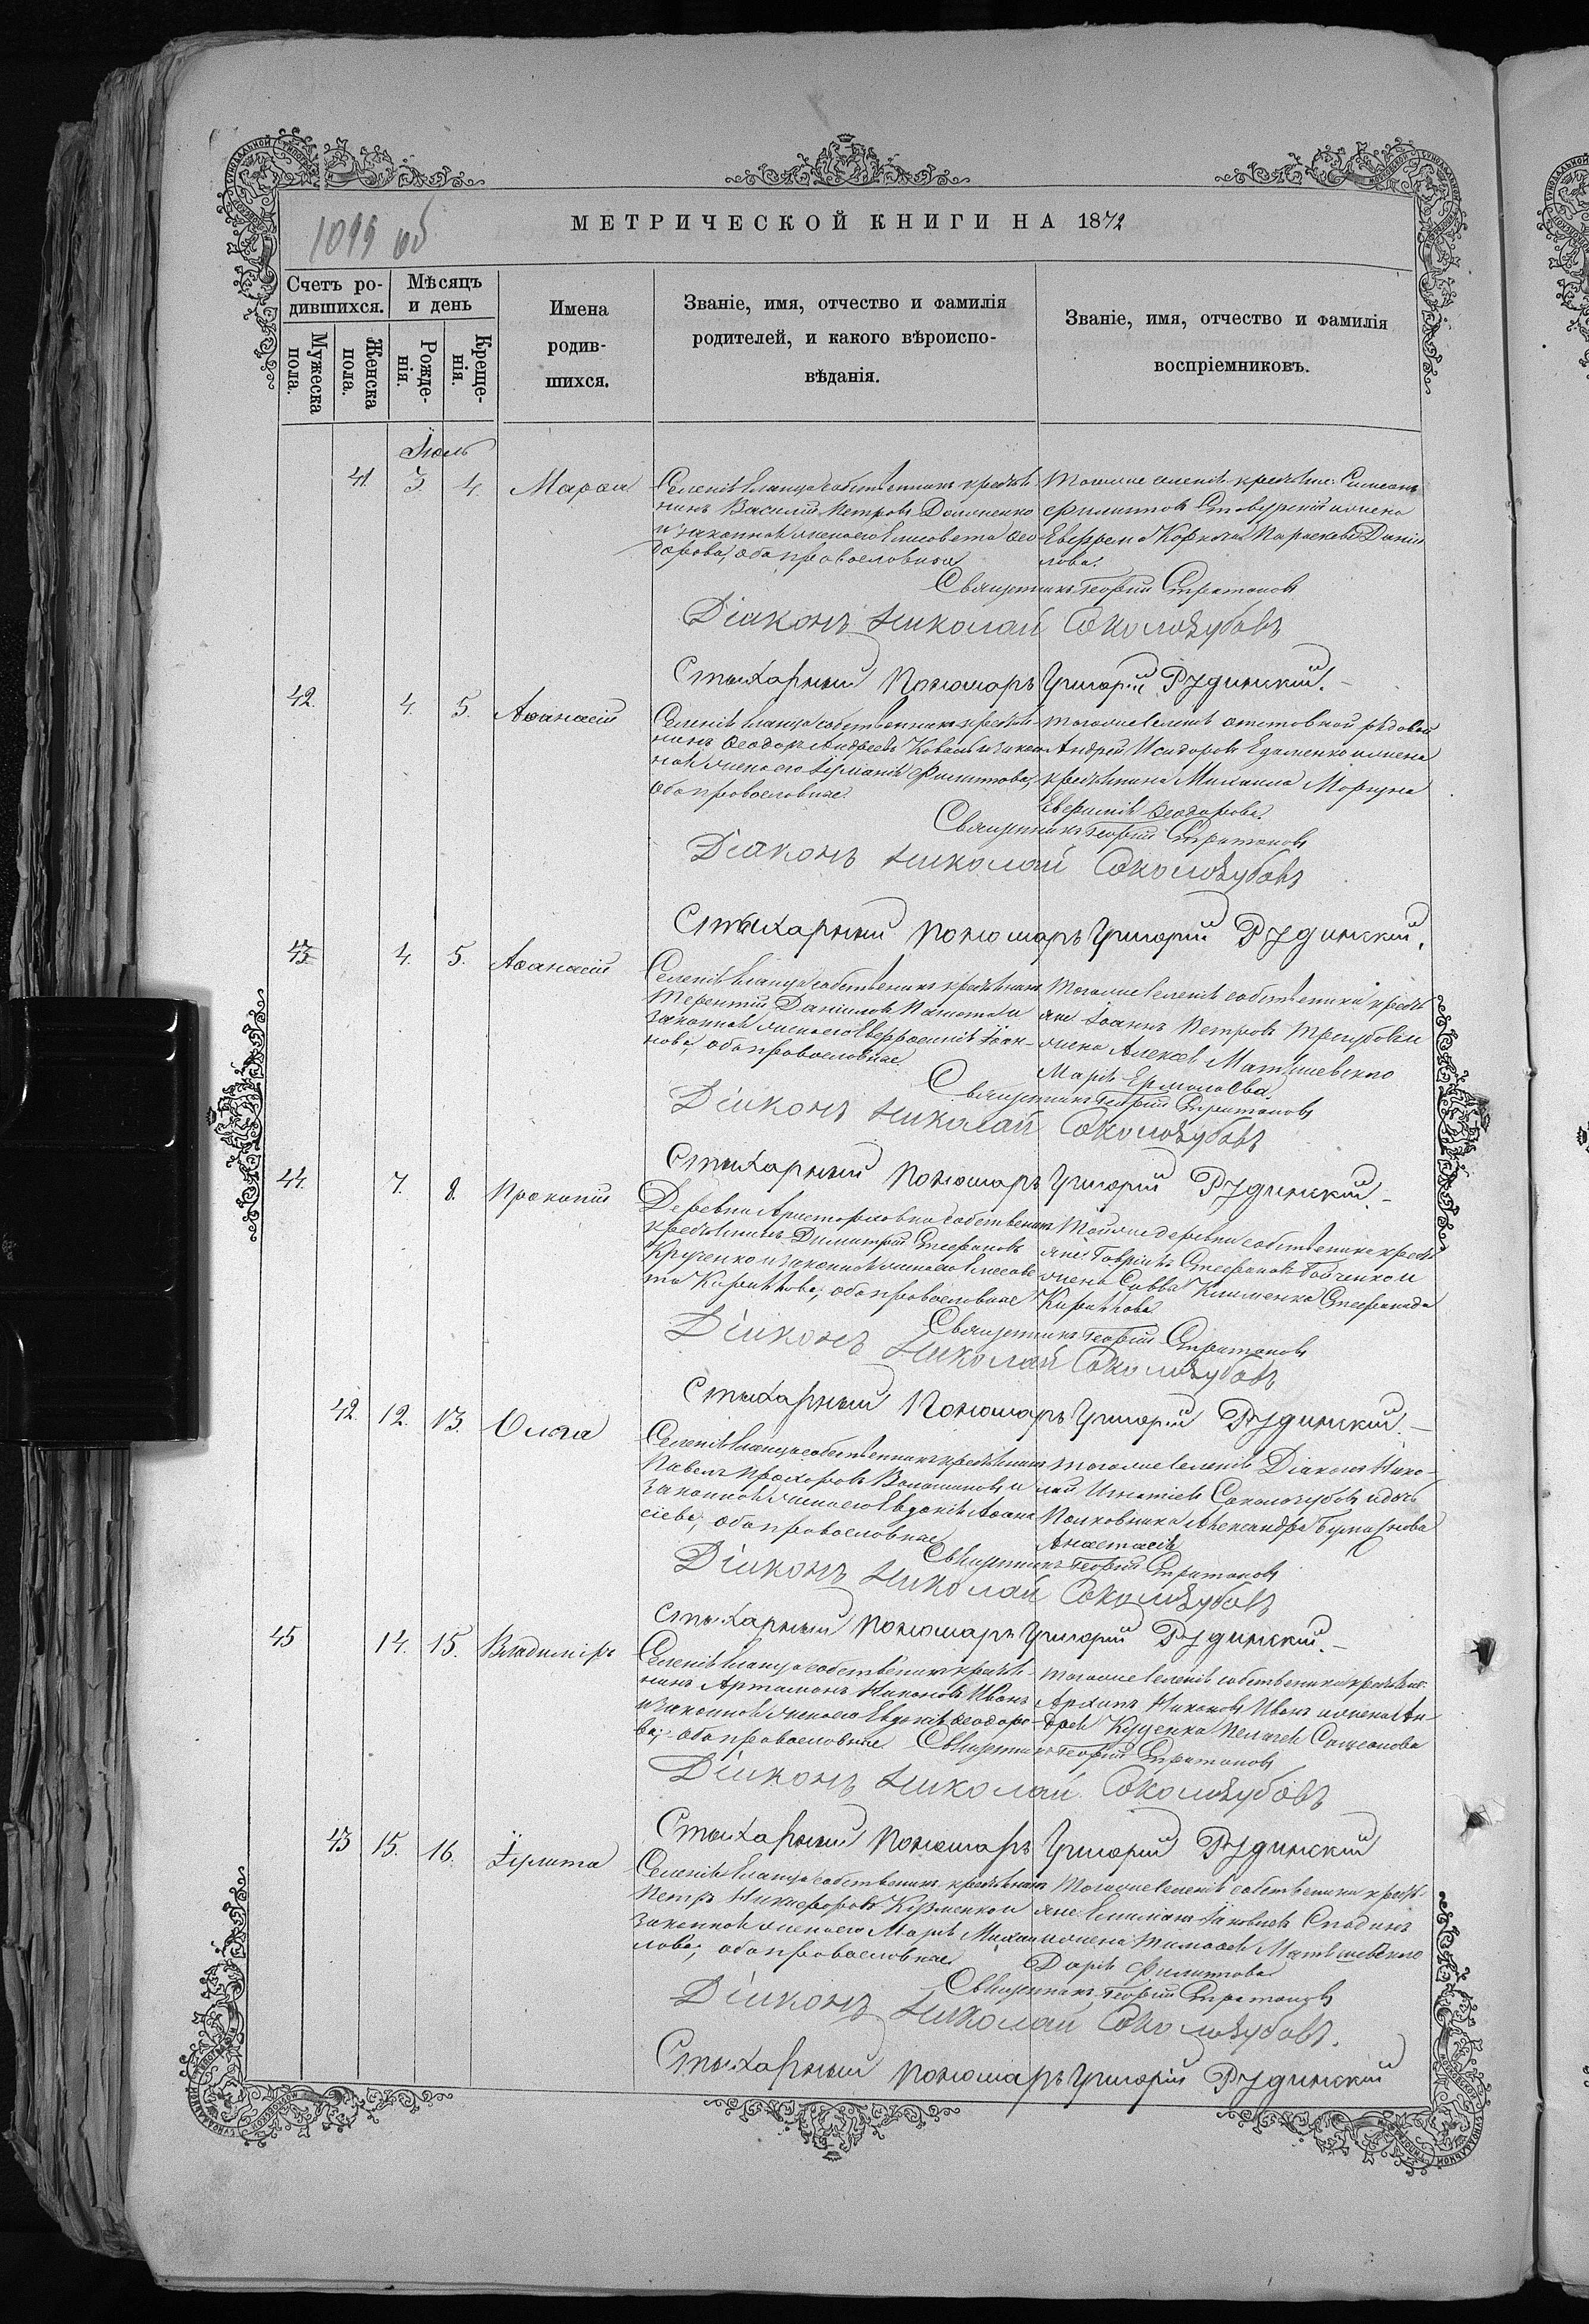 1099 об
МЕТРИЧЕСКОЙ КНИГИ НА 1872
Счетъ ро-
дившихся.
Мѣсяцъ
и день
Мужеска
пола.
Женска
пола.
Рожде-
нія.
Креще-
нія.
Имена
родив-
шихся.
Званіе, имя, отчество и фамилія
родителей, и какого вѣроиспо-
вѣданія.
Званіе, имя, отчество и фамилія
воспріемниковъ.
Іюль
41. 3. 4. Марѳа
Селенія собственникъ крестья-
нинъ Василій Петровъ
и законная жена его Елисавета Ѳео-
дорова, оба православные
Тогоже селенія крестьяне: Симеонъ
Филиповъ и жена
Параскева Дани-
лова.
Священникъ Георгій Стратоновъ
Діаконъ Николай Соколозубовъ
Стихарный Пономарь Григорій Рудинский.
42. 4. 5. Аѳанасій
Селенія собственникъ крестья-
нинъ Ѳеодоръ Андреевъ Коваль и закон-
ная жена его Филипова,
оба православные.
Тогоже селенія отставной рядовой
Андрей Исидоровъ и жена
крестьянина Михаила Моргуна
Евфимія Ѳеодорова.
Священникъ Георгій Стратоновъ
Діаконъ Николай Соколозубовъ
Стихарный пономарь Григорий Рудинский.
43. 4. 5. Аѳанасій
Селенія собственникъ крестьянинъ
Терентій Даниловъ и
законная жена его Евфросинія Іоан-
нова, оба православные.
Тогоже селенія собственники кресть-
яне Іоаннъ Петровъ и
жена Алексея
Марія Ермолаева.
Священникъ Георгій Стратоновъ
Діаконъ Николай Соколозубовъ
Стихарный пономарь Григорий Рудинский.
44. 7. 8. Прокопій
Деревни собственникъ
крестьянинъ Димитрій Стефановъ
и законная жена его Елисаве-
та Кирилова, оба православные
Тойже деревни собственники кресть-
яне: Гавріилъ Стефановъ и
жена Саввы Клименка Стефанида
Кирилова
Священникъ Георгій Стратоновъ
Діаконъ Николай Соколозубовъ
Стихарный Пономарь Григорий Рудинский.
42. 12. 13. Ольга
Селенія собственникъ крестьянинъ
Павелъ Прохоровъ и
законная жена его Евдокія Аѳана-
сіева, оба православные
Тогоже селенія Діаконъ Нико-
лай Игнатіевъ Соколозубовъ и дочь
Полковника Александра
Анастасія
Священникъ Георгій Стратоновъ
Діаконъ Николай Соколозубовъ
Стихарный пономарь Григорий Рудинский.
45 14. 15. Владиміръ
Селенія собственникъ крестья-
нинъ Артамонъ Никоновъ
и законная жена его Евдокія Ѳеодоро-
ва, оба православные.
Тогоже селенія собственники крестьяне:
Архипъ Никоновъ и жена Ан-
дрея Куценка
Священникъ Георгій Стратоновъ
Діаконъ Николай Соколозубовъ
Стихарный Пономарь Григорий Рудинский
43 15. 16. Іулита
Селенія собственникъ крестьянинъ
Петръ Никифоровъ и
законная жена его Марія Михаи-
лова, оба православные
Тогоже селенія собственники кресть-
яне Яковлевъ
и жена Тимоѳея
Дарія Филипова
Священникъ Георгій Стратоновъ
Діаконъ Николай Соколозубовъ.
Стихарный пономарь Григорий Рудинский